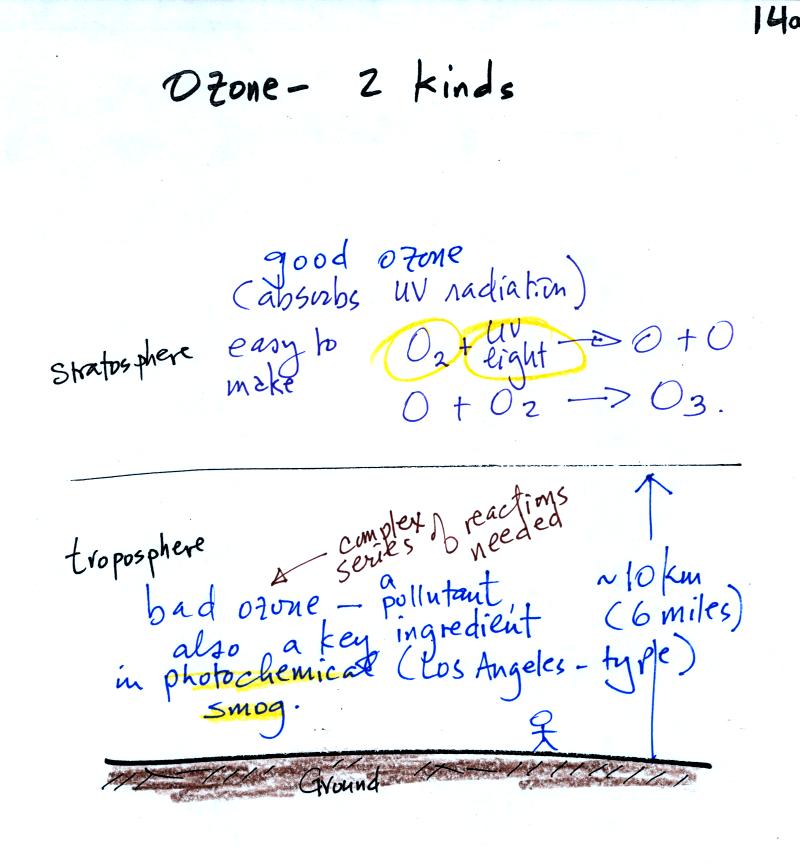 14a
Ozone - 2 kinds
good ozone
(absorbs UV radiation)
stratosphere
easy to
make
O₂ + UV light → O + O
O + O₂ → O₃.
troposphere
complex
series of reactions
needed
bad ozone — a pollutant,
also a key ingredient
in photochemical (Los Angeles - type)
smog.
~10 km
(6 miles)
Ground